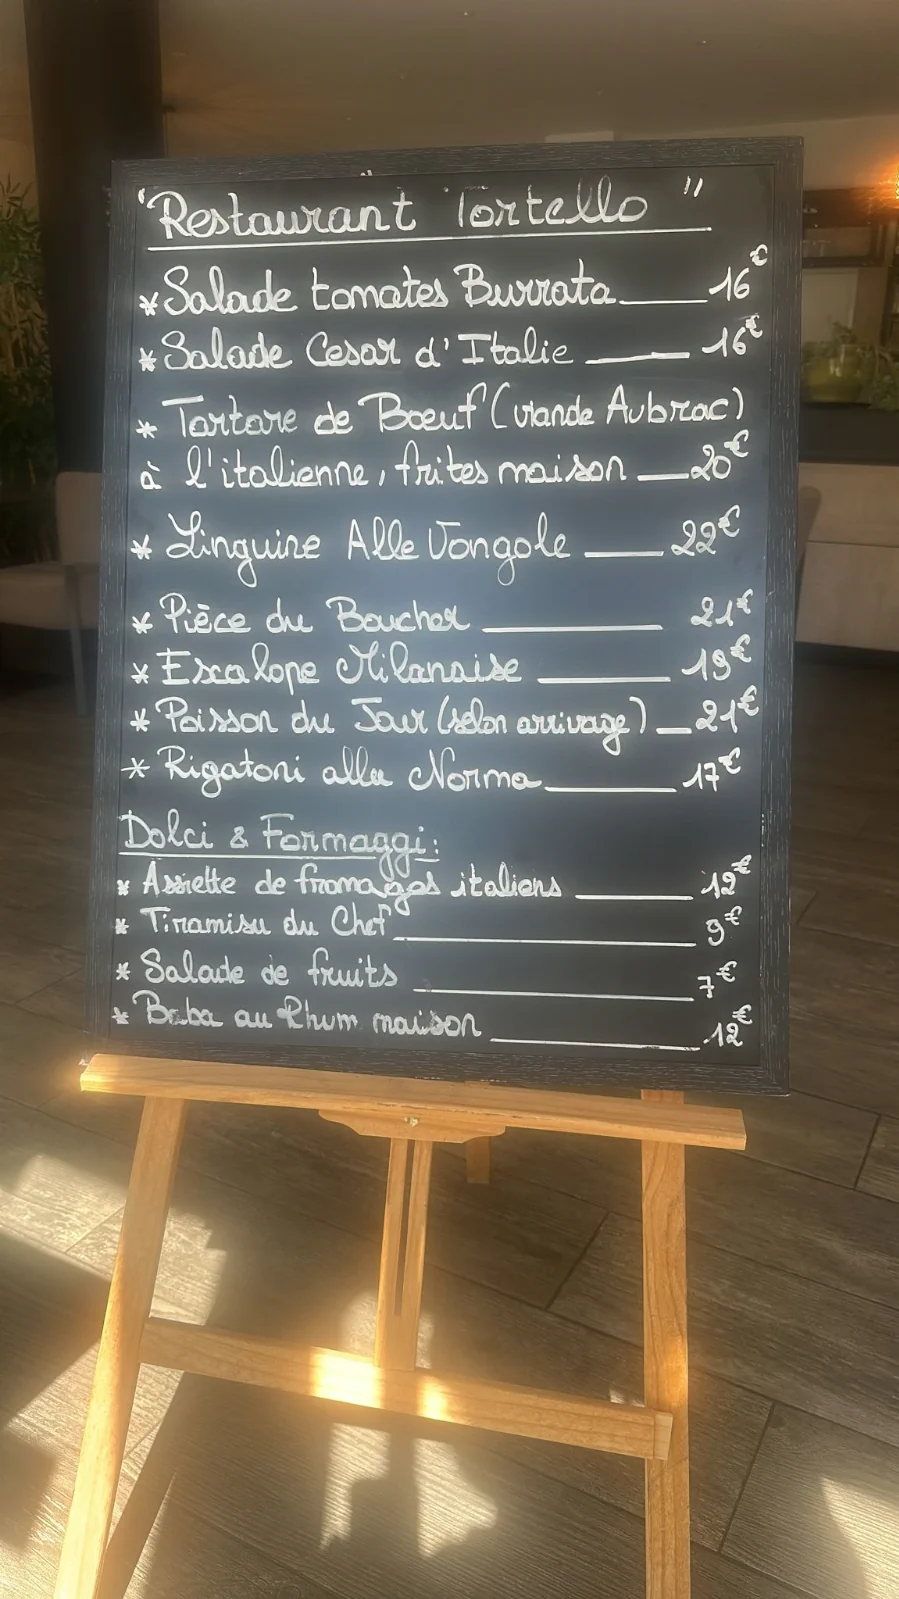 "Restaurant Tortello"
* Salade tomates Burrata 16€
* Salade Cesar d'Italie 16€
* Tartare de Bœuf (viande Aubrac)
à l'italienne, frites maison 20€
* Linguine Alle Vongole 22€
* Pièce du Boucher 21€
* Escalope Milanaise 19€
* Poisson du Jour (selon arrivage) 21€
* Rigatoni alla Norma 17€
Dolci & Formaggi:
* Assiette de fromages italiens 12€
* Tiramisu du Chef 9€
* Salade de fruits 7€
* Baba au Rhum maison 12€